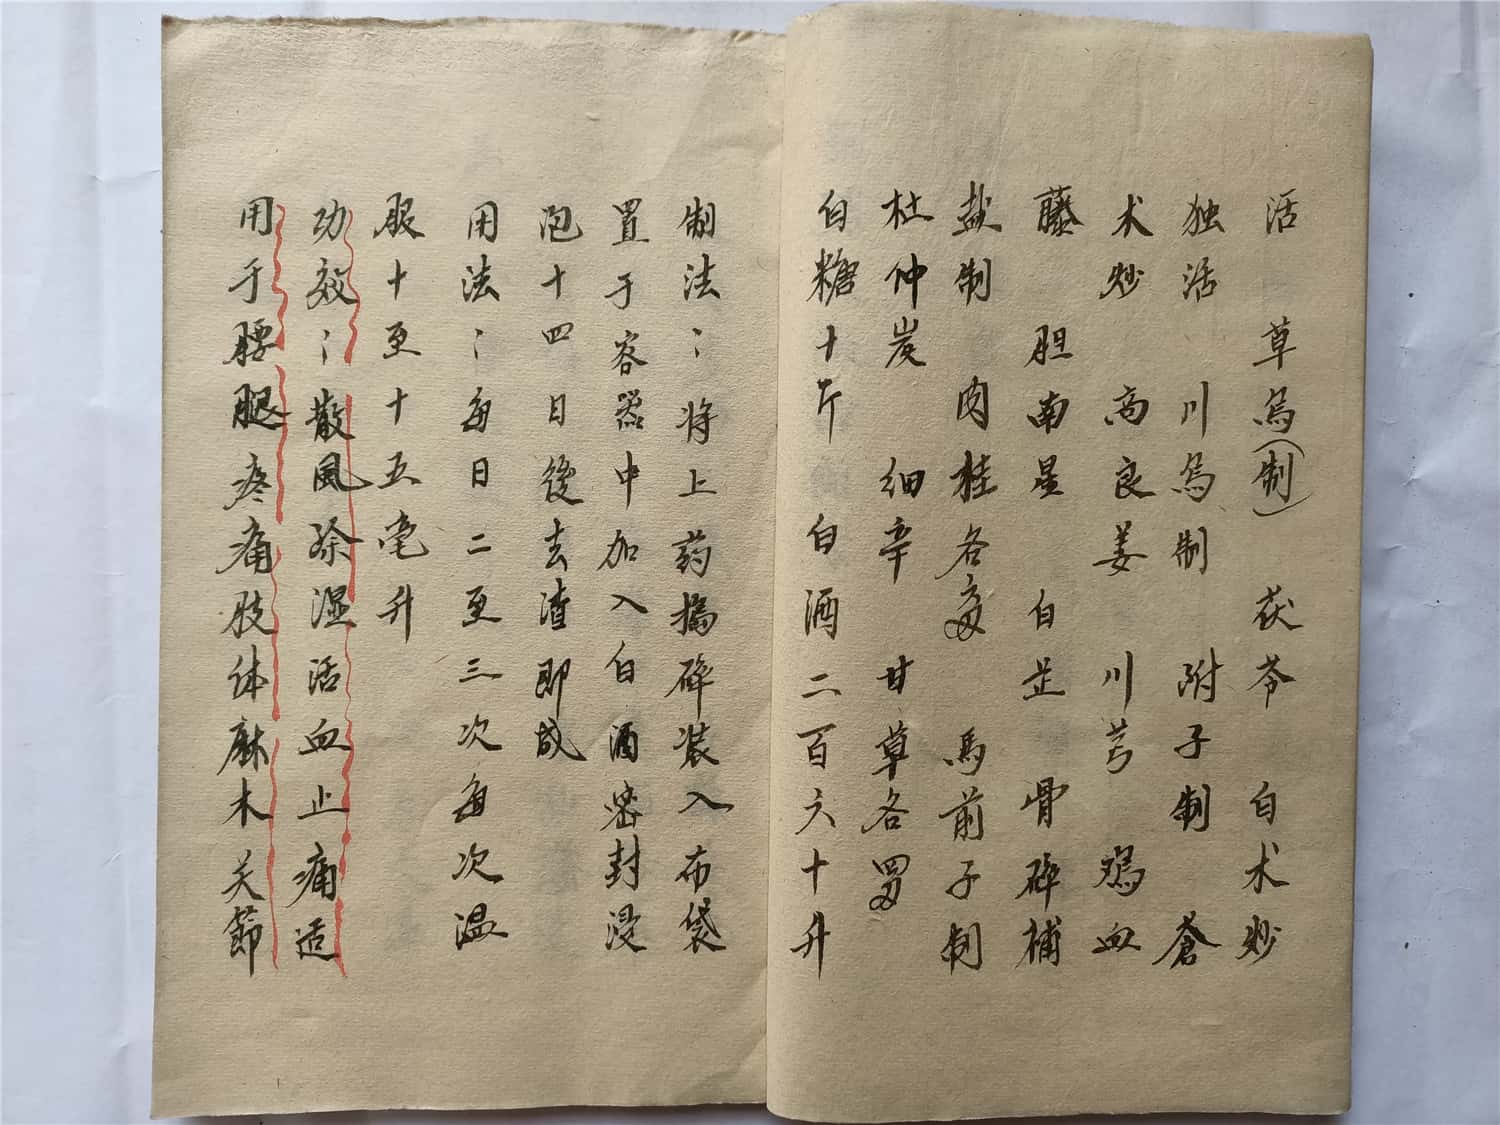 活 草乌(制) 茯苓 白术炒
独活 川乌制 附子制 苍
术炒 高良姜 川芎 鸡血
藤 胆南星 白芷 骨碎補
盐制 肉桂各 馬前子制
杜仲炭 细辛 甘草各
白糖十斤 白酒二百六十升
制法：将上药搗碎装入布袋
置于容器中加入白酒密封浸
泡十四日後去渣即成
用法：每日二至三次每次温
服十至十五毫升
功效：散風除湿活血止痛适
用于腰腿疼痛肢体麻木关節